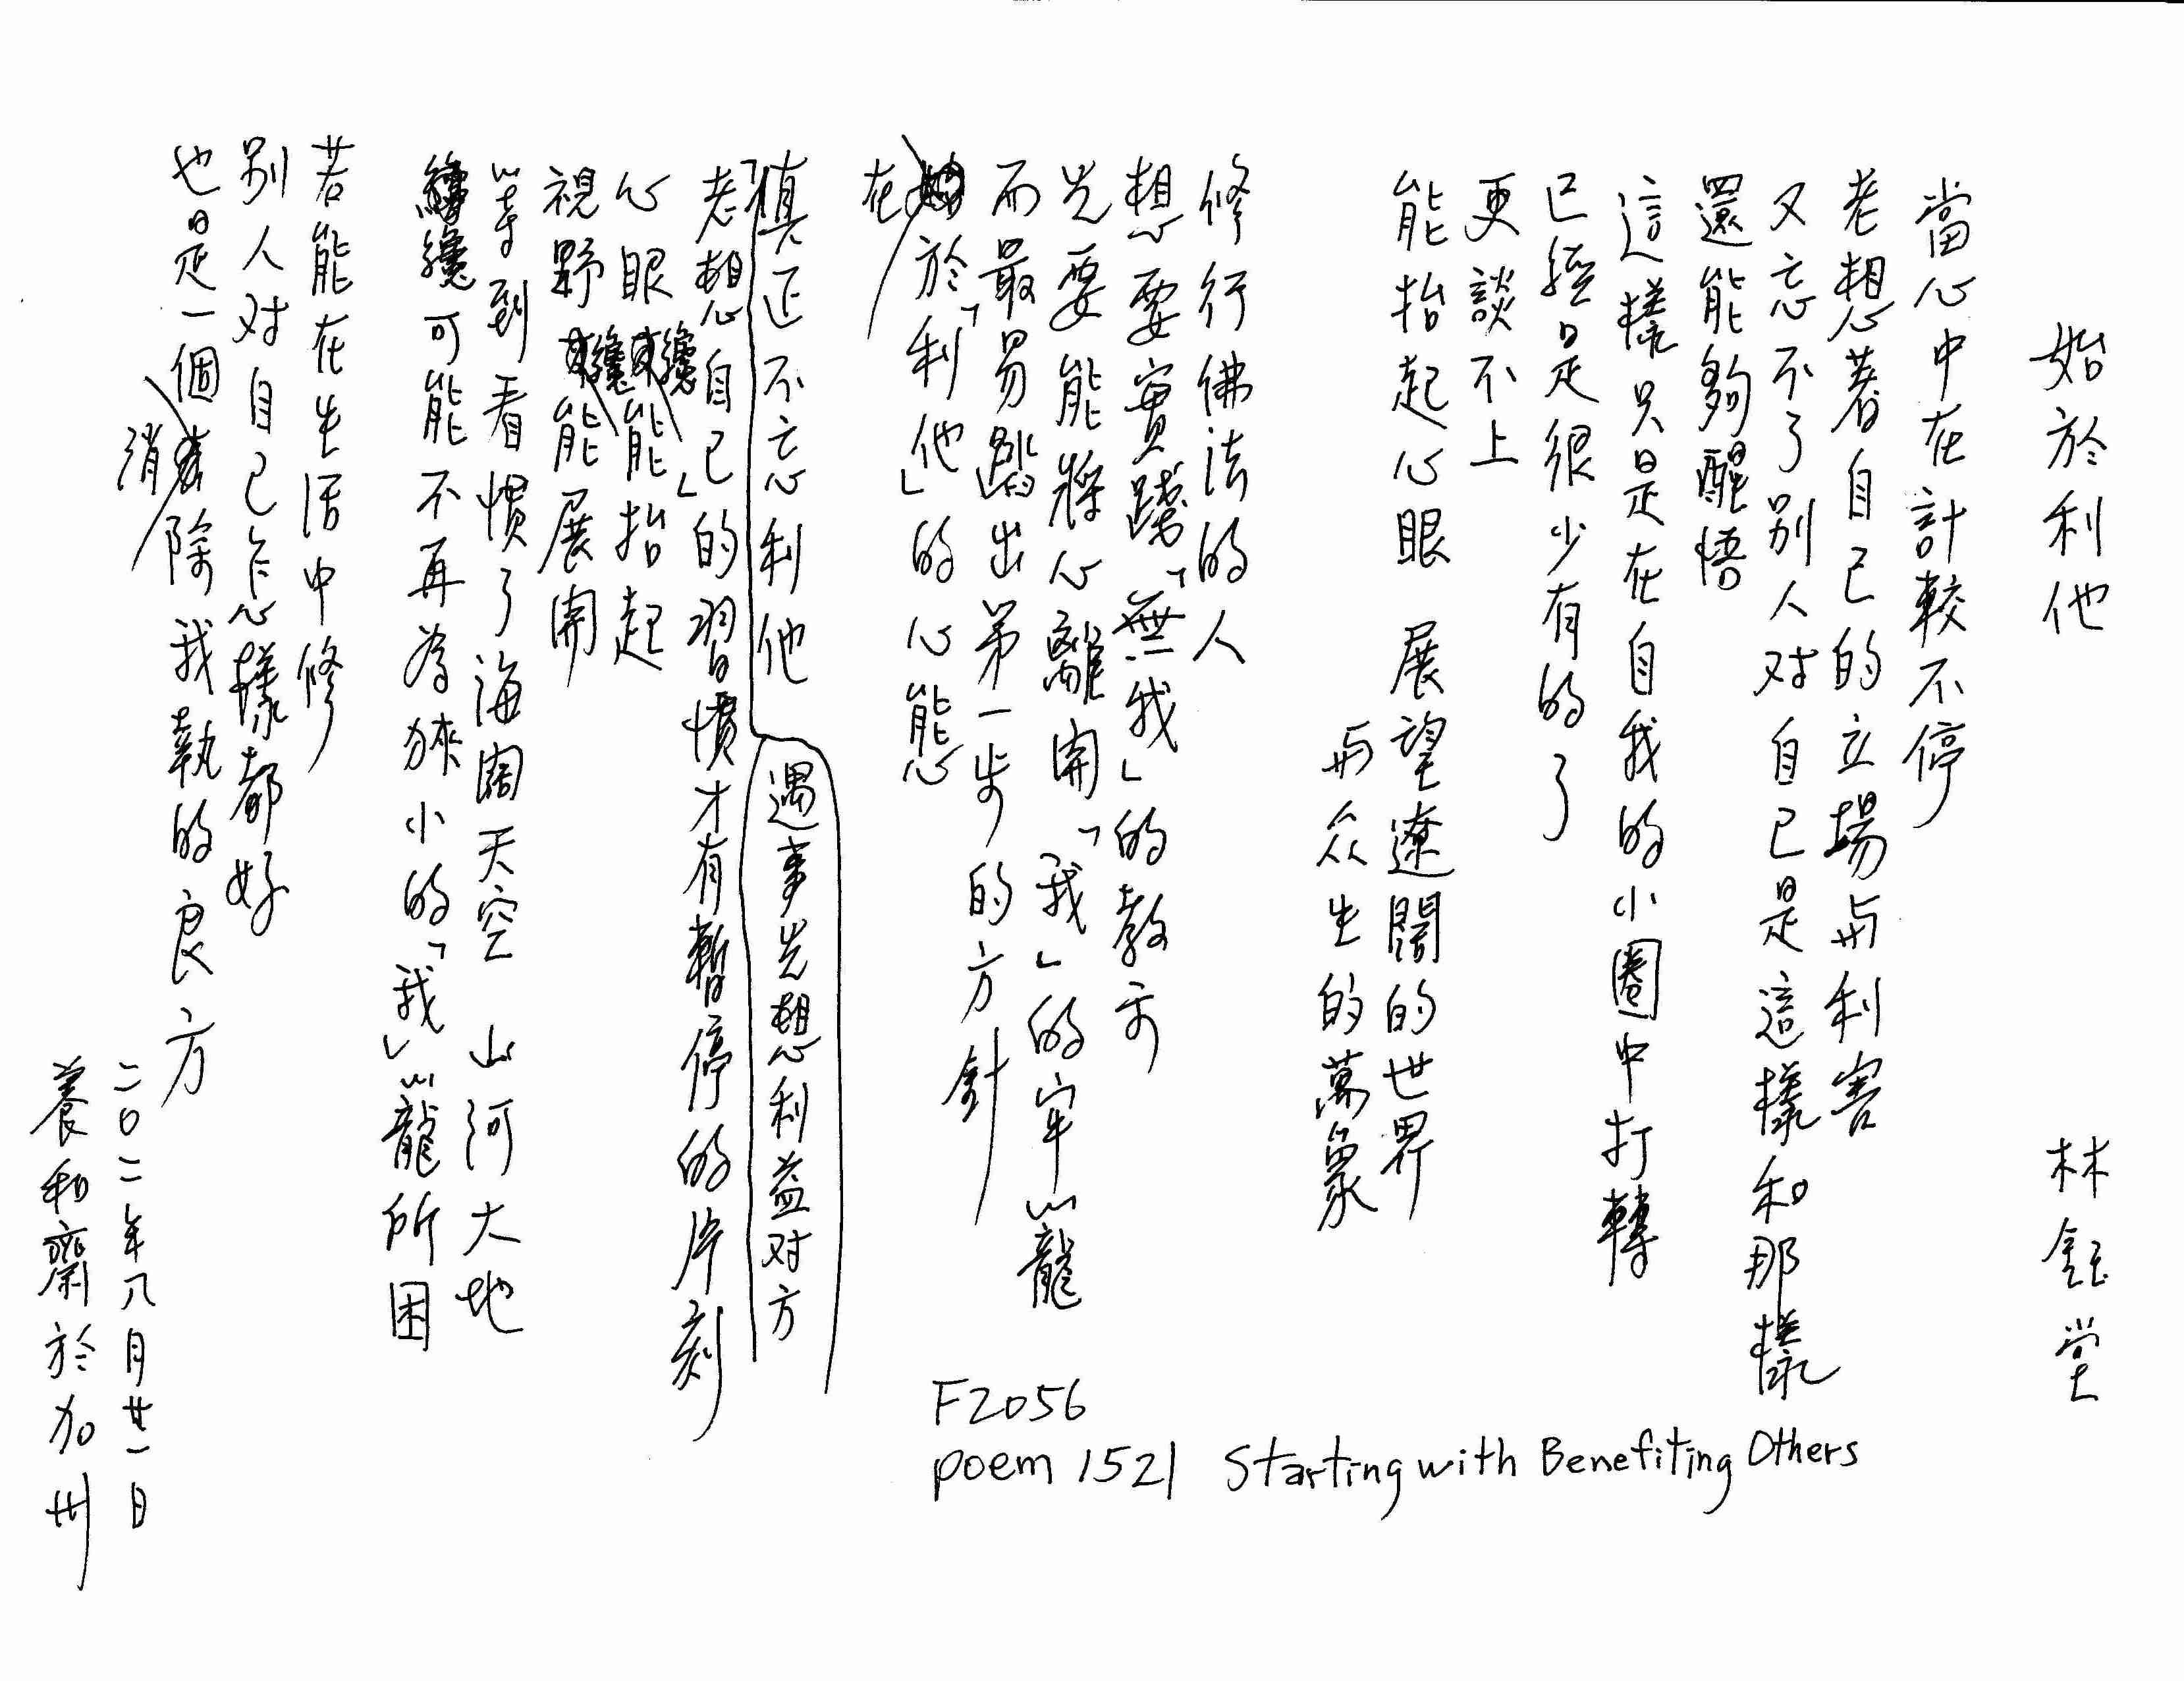 始於利他 林鈺堂
當心中在計較不停
老想著自己的立場与利害
又忘不了别人对自己是這樣和那樣
還能夠醒悟
這樣只是在自我的小圈中打轉
已經是很少有的了
更談不上
能抬起心眼 展望遼闊的世界
与众生的萬象
修行佛法的人
想要實踐「無我」的教示
先要能將心離開「我」的牢籠
而最易踏出第一步的方針
在於「利他」的心態
真正不忘利他 遇事先想利益对方
「老想自己」的習慣才有暫停的片刻
心眼纔能抬起
視野纔能展開
等到看慣了海闊天空 山河大地
纔可能不再為狹小的「我」籠所困
若能在生活中修
别人对自己怎樣都好
也是一個消除我執的良方
二〇一二年八月廿一日
養和齋於加州
F2056
poem 1521 Starting with Benefiting Others